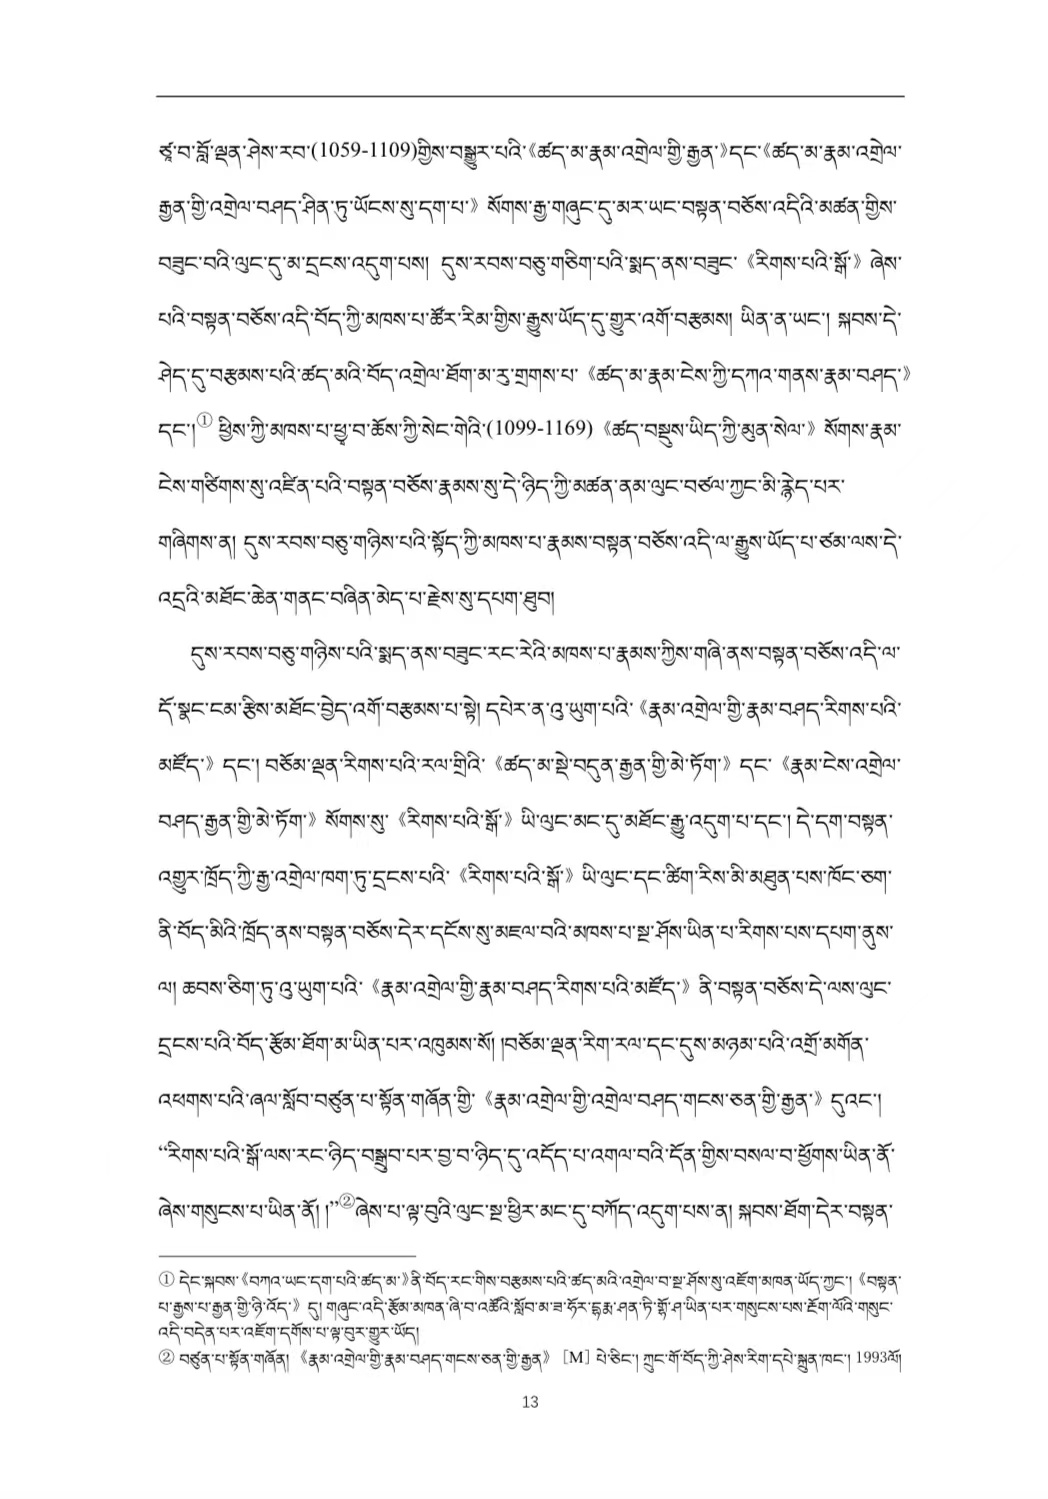 ཙཱ་བ་བློ་ལྡན་ཤེས་རབ་(1059-1109)གྱིས་བསྒྱུར་པའི་《ཚད་མ་རྣམ་འགྲེལ་གྱི་རྒྱན་》དང་《ཚད་མ་རྣམ་འགྲེལ་
རྒྱན་གྱི་འགྲེལ་བཤད་ཤིན་ཏུ་ཡོངས་སུ་དག་པ་》སོགས་རྒྱ་གཞུང་དུ་མར་ཡང་བསྟན་བཅོས་འདིའི་མཚན་གྱིས་
བཟུང་བའི་ལུང་དུ་མ་དྲངས་འདུག་པས། དུས་རབས་བཅུ་གཅིག་པའི་སྨད་ནས་བཟུང་《རིགས་པའི་སྒོ་》ཞེས་
པའི་བསྟན་བཅོས་འདི་བོད་ཀྱི་མཁས་པ་ཚོར་རིམ་གྱིས་རྒྱུས་ཡོད་དུ་གྱུར་འགོ་བརྩམས། ཡིན་ན་ཡང་། སྐབས་དེ་
ཤེད་དུ་བརྩམས་པའི་ཚད་མའི་བོད་འགྲེལ་ཐོག་མ་རུ་གྲགས་པ་《ཚད་མ་རྣམ་ངེས་ཀྱི་དཀའ་གནས་རྣམ་བཤད་》
དང་།① ཕྱིས་ཀྱི་མཁས་པ་ཕྱྭ་བ་ཆོས་ཀྱི་སེང་གེའི་(1099-1169)《ཚད་བསྡུས་ཡིད་ཀྱི་མུན་སེལ་》སོགས་རྣམ་
ངེས་གཙིགས་སུ་འཛིན་པའི་བསྟན་བཅོས་རྣམས་སུ་དེ་ཉིད་ཀྱི་མཚན་ནམ་ལུང་བཙལ་ཀྱང་མི་རྙེད་པར་
གཞིགས་ན། དུས་རབས་བཅུ་གཉིས་པའི་སྟོད་ཀྱི་མཁས་པ་རྣམས་བསྟན་བཅོས་འདི་ལ་རྒྱུས་ཡོད་པ་ཙམ་ལས་དེ་
འདྲའི་མཐོང་ཆེན་གནང་བཞིན་མེད་པ་རྗེས་སུ་དཔག་ཐུབ།
དུས་རབས་བཅུ་གཉིས་པའི་སྨད་ནས་བཟུང་རང་རེའི་མཁས་པ་རྣམས་ཀྱིས་གཞི་ནས་བསྟན་བཅོས་འདི་ལ་
དོ་སྣང་ངམ་རྩིས་མཐོང་བྱེད་འགོ་བརྩམས་པ་སྟེ། དཔེར་ན་འུ་ཡུག་པའི་《རྣམ་འགྲེལ་གྱི་རྣམ་བཤད་རིགས་པའི་
མཛོད་》དང་། བཅོམ་ལྡན་རིགས་པའི་རལ་གྲིའི་《ཚད་མ་སྡེ་བདུན་རྒྱན་གྱི་མེ་ཏོག་》དང་《རྣམ་ངེས་འགྲེལ་
བཤད་རྒྱན་གྱི་མེ་ཏོག་》སོགས་སུ་《རིགས་པའི་སྒོ་》ཡི་ལུང་མང་དུ་མཐོང་རྒྱུ་འདུག་པ་དང་། དེ་དག་བསྟན་
འགྱུར་ཁྲོད་ཀྱི་རྒྱ་འགྲེལ་ཁག་ཏུ་དྲངས་པའི་《རིགས་པའི་སྒོ་》ཡི་ལུང་དང་ཚིག་རིས་མི་མཐུན་པས་ཁོང་ཅག་
ནི་བོད་མིའི་ཁྲོད་ནས་བསྟན་བཅོས་དེར་དངོས་སུ་མཇལ་བའི་མཁས་པ་སྔ་ཤོས་ཡིན་པ་རིགས་པས་དཔག་ནུས་
ལ། ཆབས་ཅིག་ཏུ་འུ་ཡུག་པའི་《རྣམ་འགྲེལ་གྱི་རྣམ་བཤད་རིགས་པའི་མཛོད་》ནི་བསྟན་བཅོས་དེ་ལས་ལུང་
དྲངས་པའི་བོད་རྩོམ་ཐོག་མ་ཡིན་པར་འཁུམས་སོ། །བཅོམ་ལྡན་རིག་རལ་དང་དུས་མཉམ་པའི་འགྲོ་མགོན་
འཕགས་པའི་ཞལ་སློབ་བཙུན་པ་སྟོན་གཞོན་གྱི་《རྣམ་འགྲེལ་གྱི་འགྲེལ་བཤད་གངས་ཅན་གྱི་རྒྱན་》དུའང་།
“རིགས་པའི་སྒོ་ལས་རང་ཉིད་བསྒྲུབ་པར་བྱ་བ་ཉིད་དུ་འདོད་པ་འགལ་བའི་དོན་གྱིས་བསལ་བ་ཕྱོགས་ཡིན་ནོ་
ཞེས་གསུངས་པ་ཡིན་ནོ། །”②ཞེས་པ་ལྟ་བུའི་ལུང་སྔ་ཕྱིར་མང་དུ་བཀོད་འདུག་པས་ན། སྐབས་ཐོག་དེར་བསྟན་
① དེང་སྐབས་《བཀའ་ཡང་དག་པའི་ཚད་མ་》ནི་བོད་རང་གིས་བརྩམས་པའི་ཚད་མའི་འགྲེལ་བ་སྔ་ཤོས་སུ་འཇོག་མཁན་ཡོད་ཀྱང་།《བསྟན་
པ་རྒྱས་པ་རྒྱན་གྱི་ཉི་འོད་》དུ། གཞུང་འདི་རྩོམ་མཁན་ཞི་བ་འཚོའི་སློབ་མ་ཟ་ཧོར་དྷརྨ་ཤན་ཏི་གྷོ་ཤ་ཡིན་པར་གསུངས་པས་རྔོག་ལོའི་གསུང་
འདི་བདེན་པར་འཇོག་དགོས་པ་ལྟ་བུར་གྱུར་ཡོད།
② བཙུན་པ་སྟོན་གཞོན།《རྣམ་འགྲེལ་གྱི་རྣམ་བཤད་གངས་ཅན་གྱི་རྒྱན》[M] པེ་ཅིང་། ཀྲུང་གོ་བོད་ཀྱི་ཤེས་རིག་དཔེ་སྐྲུན་ཁང་། 1993ལོ།
13